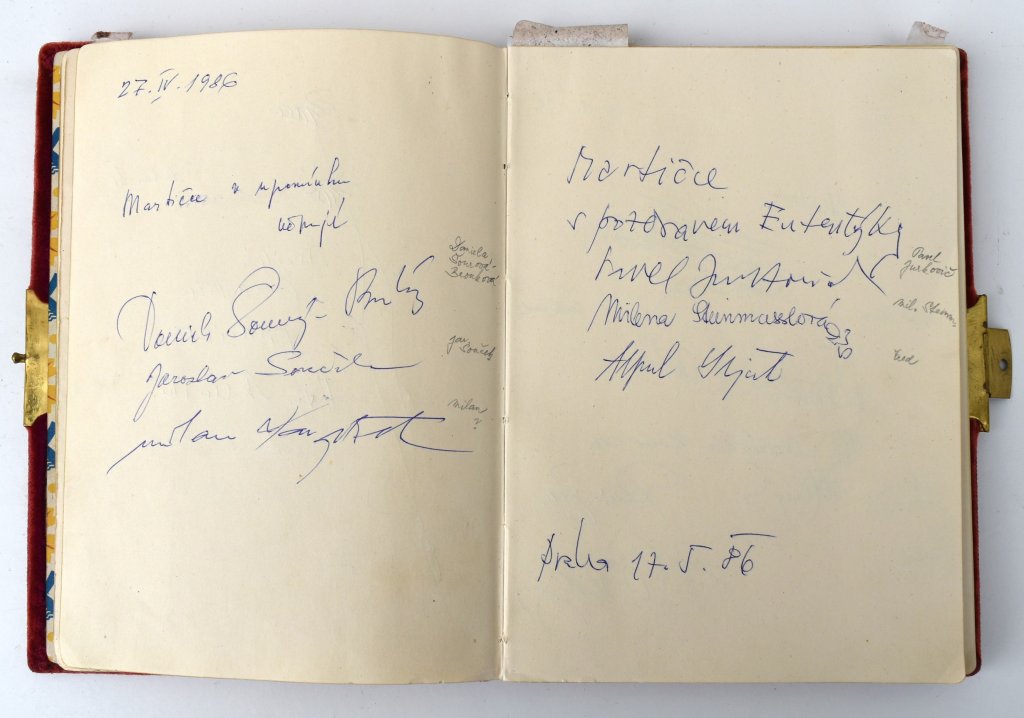 27. IV. 1986
Martičce v upomínku
věnují
Daniela
Sourová-
Broukova
Daniela
Jaroslav Souček
Jan
Souček
Milan
?
Milan
Martičce
s pozdravem Ententýky
Pavel Jurkovič
Pavel
Jurkovič
Milena Steinmasslová
Mil. Steinm.
Alfréd Strejček
Fred
Praha 17. V. 86